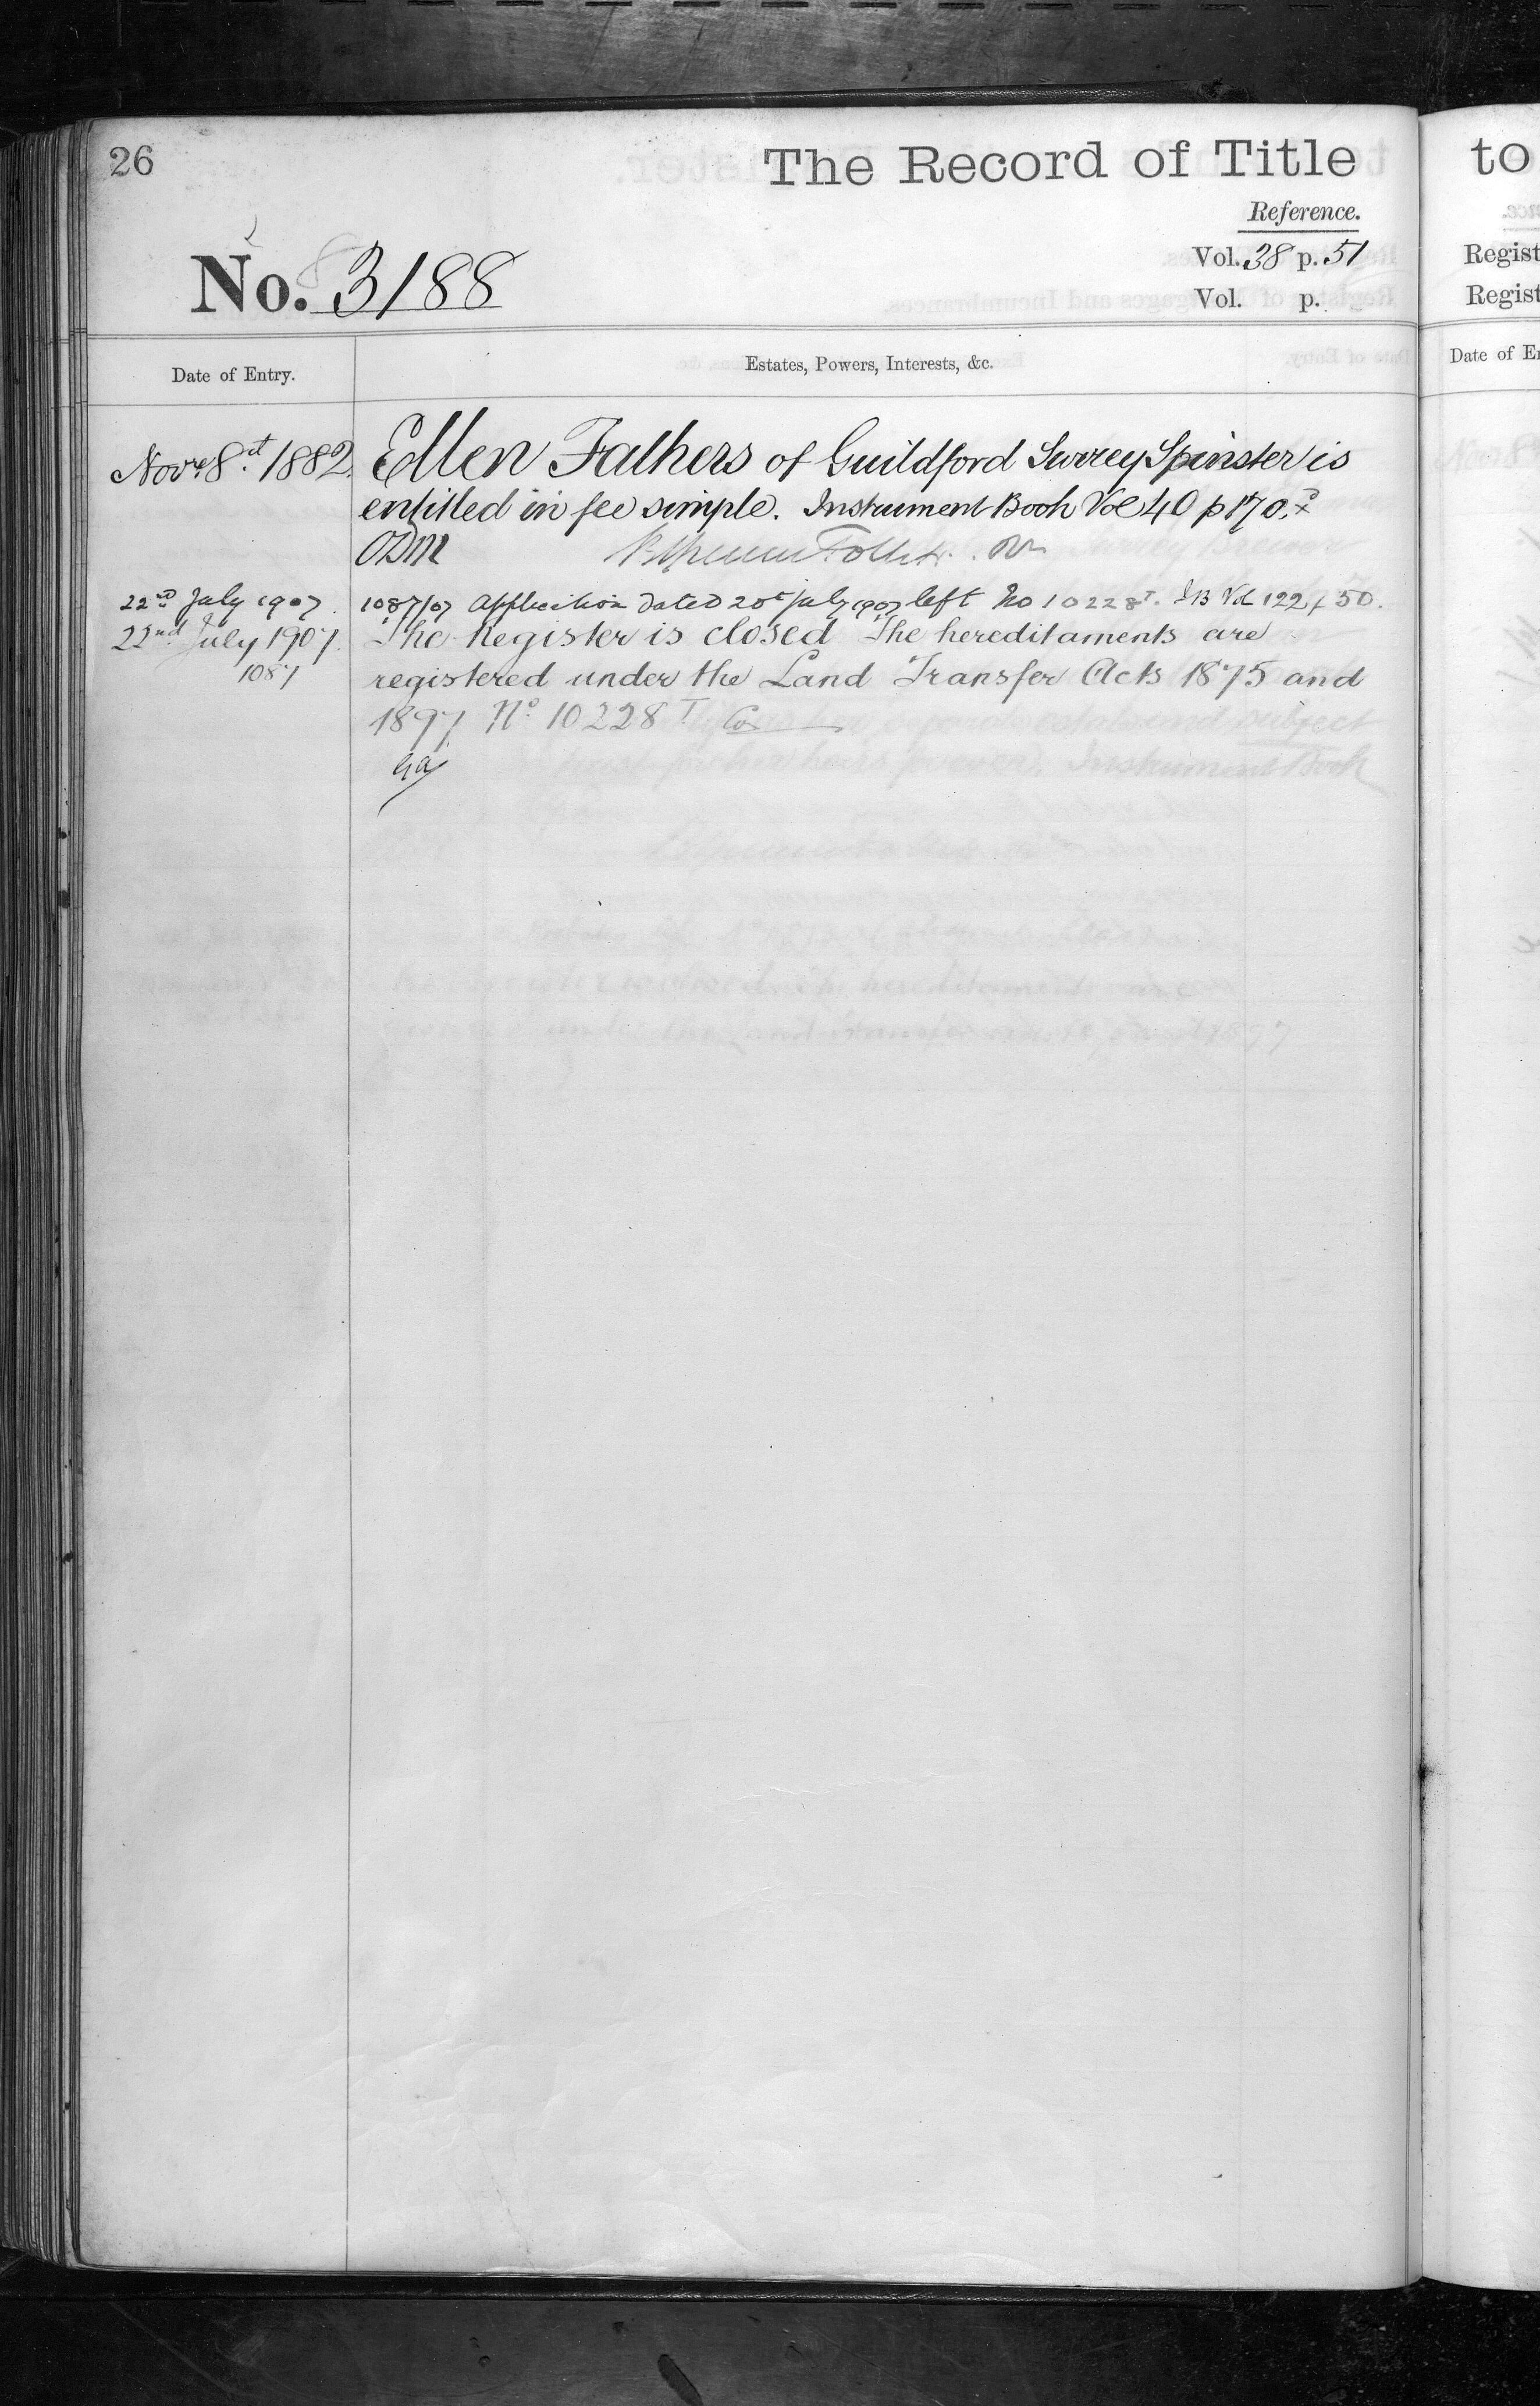 26
The Record of Title
Reference.
No. 3188
Vol. 38 p. 51
Vol. p.
Date of Entry.
Estates, Powers, Interests, &c.
Novr 8.st 1882. Ellen Fathers of Guildford Surrey Spinster is
entitled in fee simple. Instrument Book Vol 40 p 170.
ODM
22nd July 1907. 1087/07 Application dated 20t July 1907 left No 10228T. IB Vol 122 p 50.
22nd July 1907. The Register is closed The hereditaments are
1087 registered under the Land Transfer Acts 1875 and
1897 No. 10228 T
to
Regist
Regist
Date of E